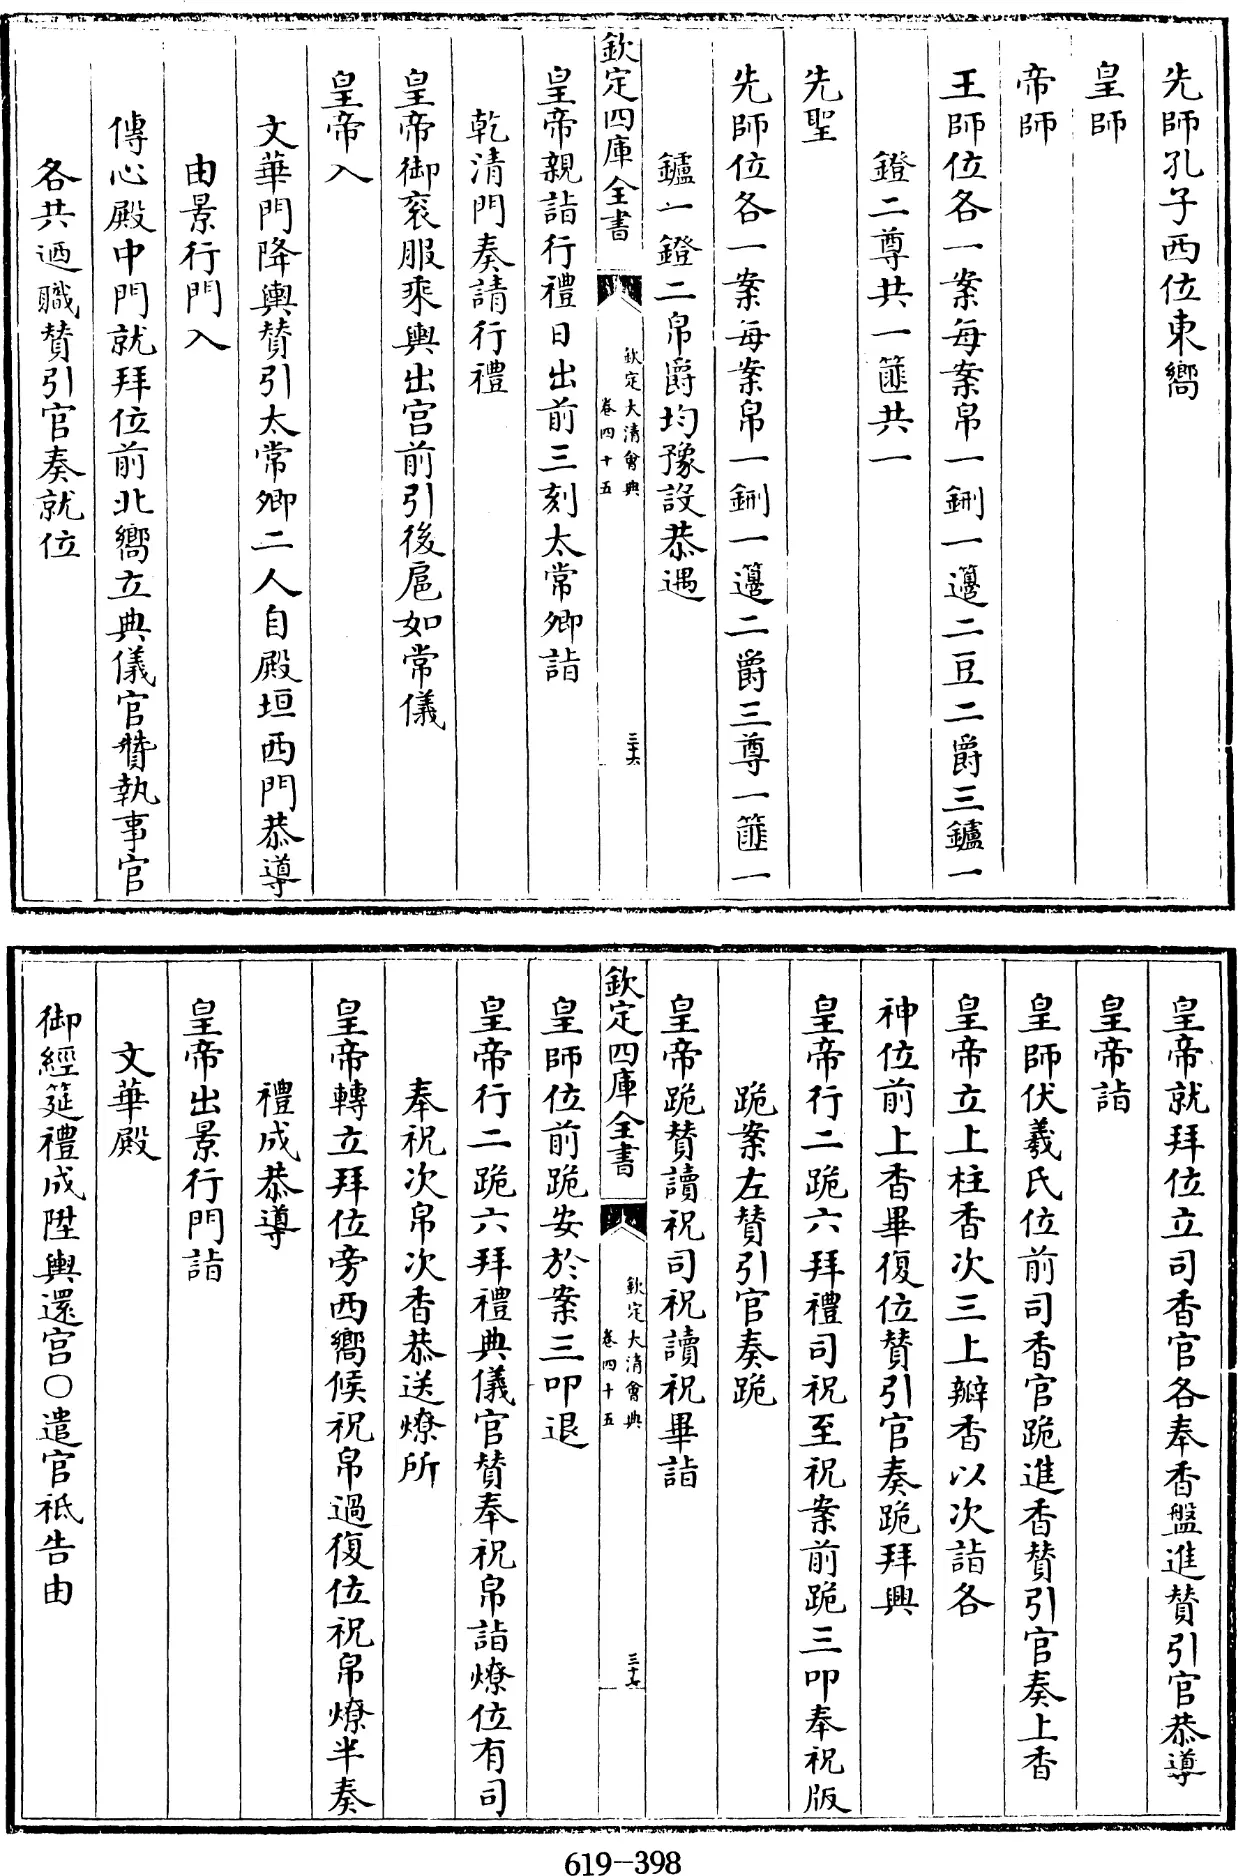 先師孔子西位東嚮
皇師
帝師
王師位各一案每案帛一鉶一籩二豆二爵三鑪一
鐙二尊共一篚共一
先聖
先師位各一案每案帛一鉶一籩二爵三尊一篚一
鑪一鐙二帛爵均豫設恭遇
欽定四庫全書
欽定大清會典
卷四十五
三十六
皇帝親詣行禮日出前三刻太常卿詣
乾清門奏請行禮
皇帝御衮服乘輿出宫前引後扈如常儀
皇帝入
文華門降輿贊引太常卿二人自殿垣西門恭導
由景行門入
傳心殿中門就拜位前北嚮立典儀官贊執事官
各共迺職贊引官奏就位
皇帝就拜位立司香官各奉香盤進贊引官恭導
皇帝詣
皇師伏羲氏位前司香官跪進香贊引官奏上香
皇帝立上柱香次三上瓣香以次詣各
神位前上香畢復位贊引官奏跪拜興
皇帝行二跪六拜禮司祝至祝案前跪三叩奉祝版
跪案左贊引官奏跪
皇帝跪贊讀祝司祝讀祝畢詣
欽定四庫全書
欽定大清會典
卷四十五
三十七
皇師位前跪安於案三叩退
皇帝行二跪六拜禮典儀官贊奉祝帛詣燎位有司
奉祝次帛次香恭送燎所
皇帝轉立拜位旁西嚮候祝帛過復位祝帛燎半奏
禮成恭導
皇帝出景行門詣
文華殿
御經筵禮成陞輿還宫○遣官祗告由
619-398